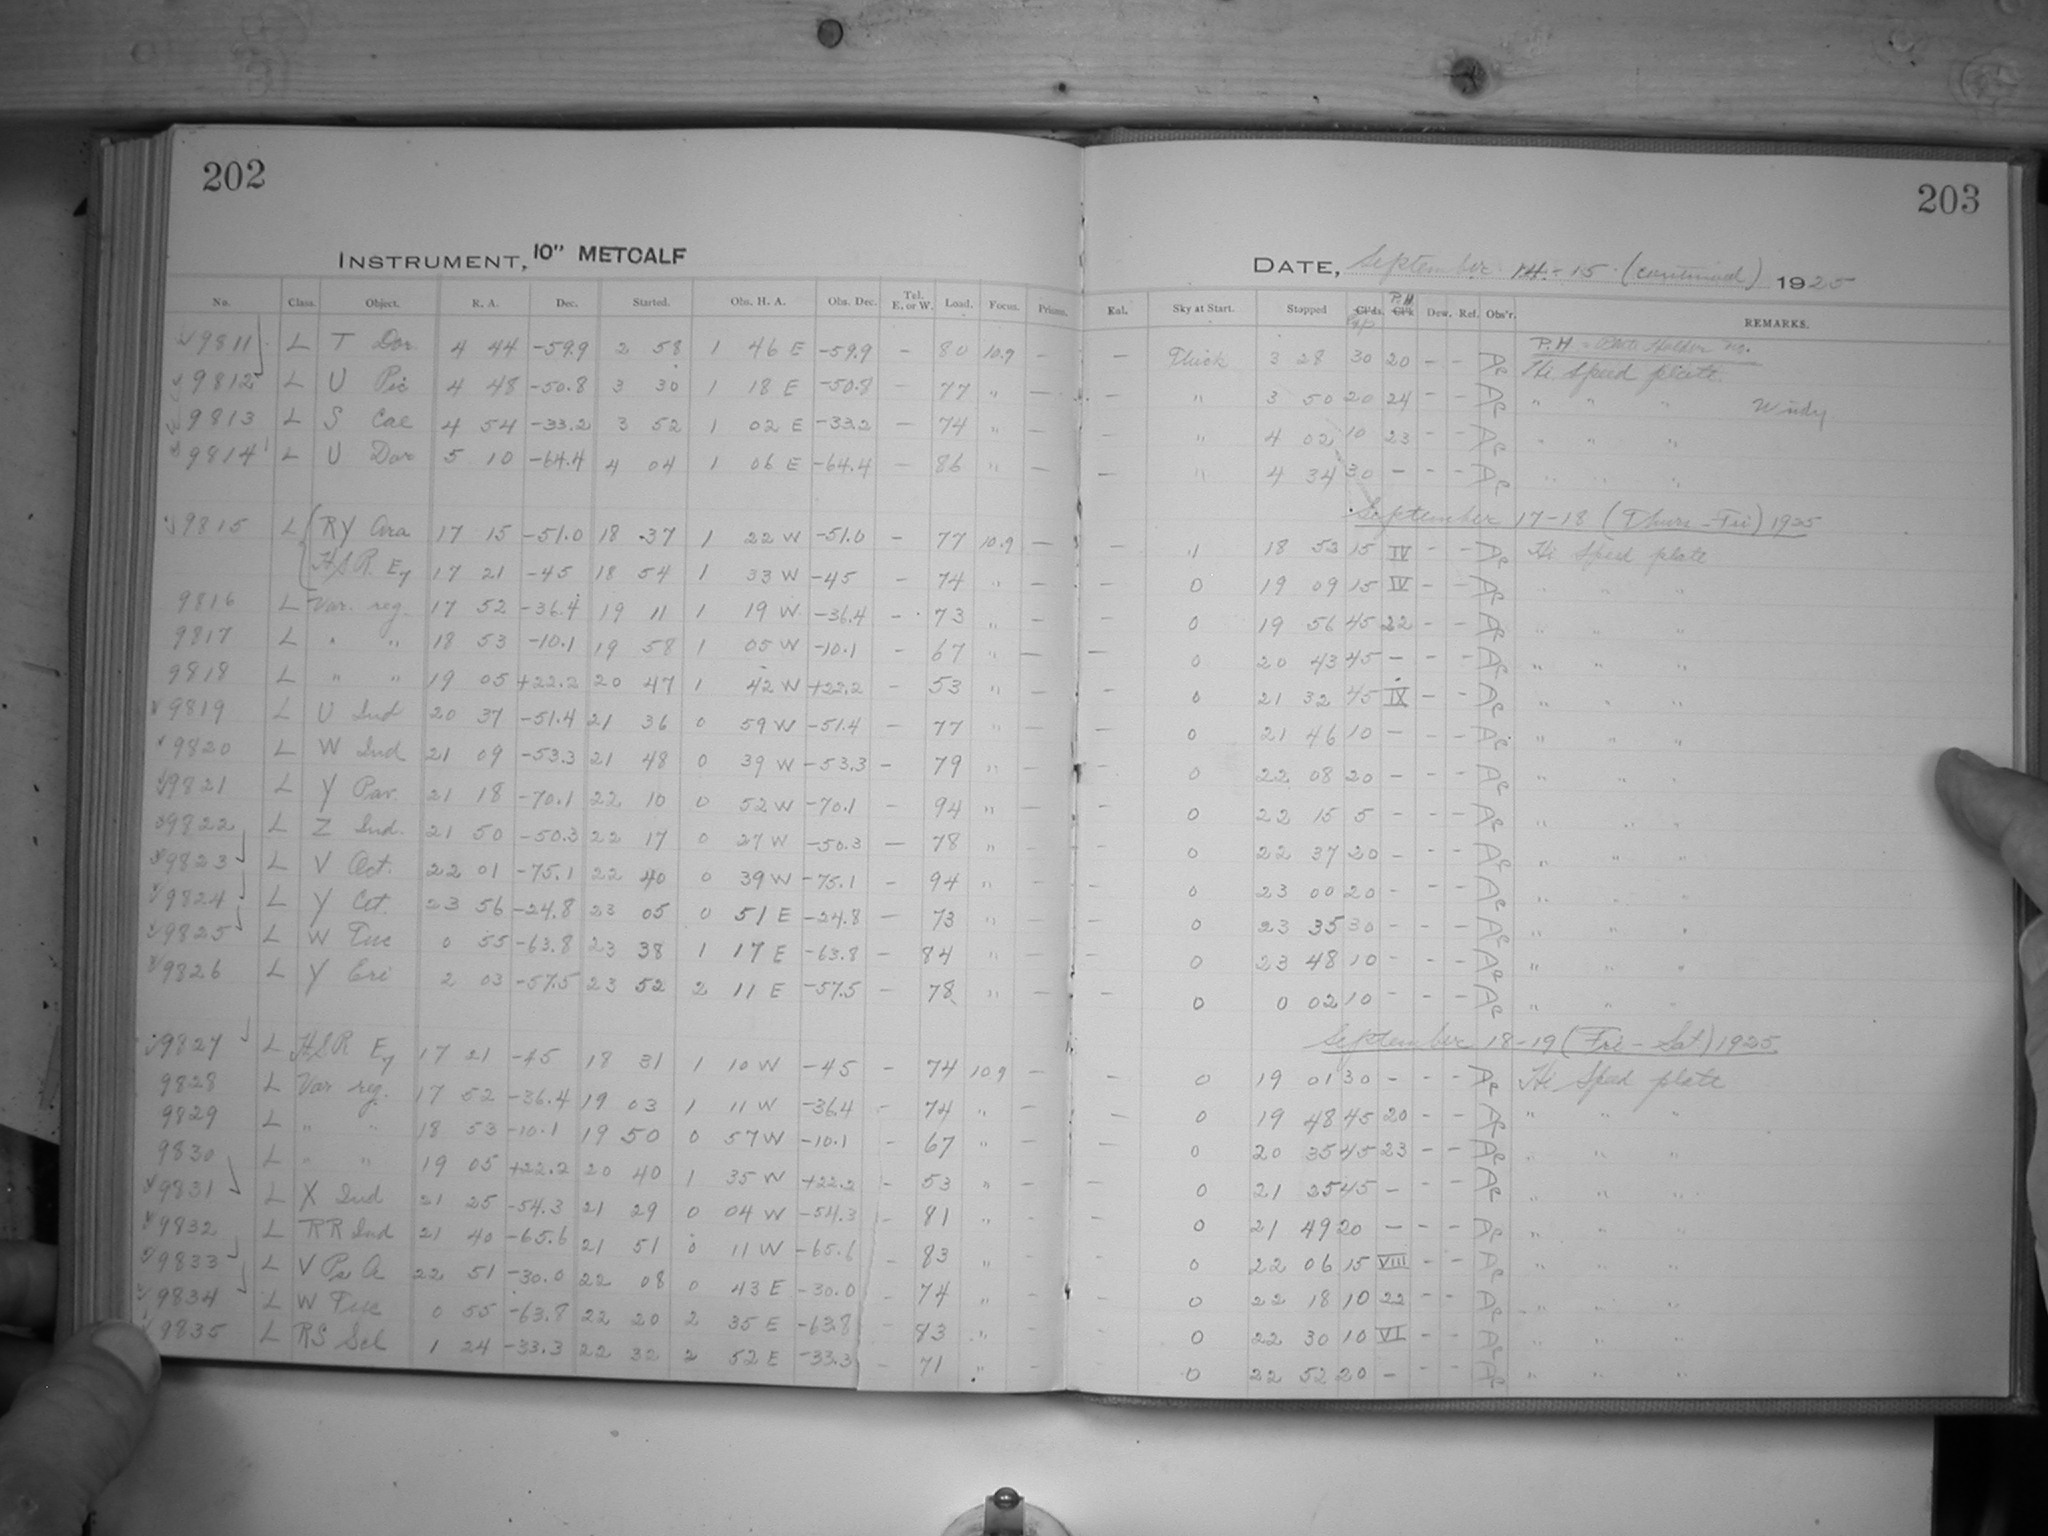 202
INSTRUMENT, 10" METCALF
No. Class. Object. R. A. Dec. Started. Obs. H. A. Obs. Dec. Tel. E. or W. Load. Focus. Prisms.
9811 L T Dor. 4 44 -59.9 2 58 1 46 E -59.9 - 80 10.9 -
9812 L U Pic 4 48 -50.8 3 30 1 18 E -50.8 - 77 " -
9813 L S Cae 4 54 -33.2 3 52 1 02 E -33.2 - 74 " -
9814 L U Dor 5 10 -64.4 4 04 1 06 E -64.4 - 86 " -
9815 L RY Ara 17 15 -51.0 18 37 1 22 W -51.0 - 77 10.9 -
H.S.R. E7 17 21 -45 18 54 1 33 W -45 - 74 " -
9816 L Var. reg. 17 52 -36.4 19 11 1 19 W -36.4 - 73 " -
9817 L " " 18 53 -10.1 19 58 1 05 W -10.1 - 67 " -
9818 L " " 19 05 +22.2 20 47 1 42 W +22.2 - 53 " -
9819 L U Ind 20 37 -51.4 21 36 0 59 W -51.4 - 77 " -
9820 L W Ind 21 09 -53.3 21 48 0 39 W -53.3 - 79 " -
9821 L Y Pav. 21 18 -70.1 22 10 0 52 W -70.1 - 94 " -
9822 L Z Ind. 21 50 -50.3 22 17 0 27 W -50.3 - 78 " -
9823 L V Oct. 22 01 -75.1 22 40 0 39 W -75.1 - 94 " -
9824 L Y Cet. 23 56 -24.8 23 05 0 51 E -24.8 - 73 " -
9825 L W Tuc 0 55 -63.8 23 38 1 17 E -63.8 - 84 " -
9826 L Y Eri 2 03 -57.5 23 52 2 11 E -57.5 - 78 " -
9827 L HSR E7 17 21 -45 18 31 1 10 W -45 - 74 10.9 -
9828 L Var reg. 17 52 -36.4 19 03 1 11 W -36.4 - 74 " -
9829 L " " 18 53 -10.1 19 50 0 57 W -10.1 - 67 " -
9830 L " " 19 05 +22.2 20 40 1 35 W +22.2 - 53 " -
9831 L X Ind 21 25 -54.3 21 29 0 04 W -54.3 - 81 " -
9832 L RR Ind 21 40 -65.6 21 51 0 11 W -65.6 - 83 " -
9833 L V Ps A 22 51 -30.0 22 08 0 43 E -30.0 - 74 " -
9834 L W Tuc 0 55 -63.8 22 20 2 35 E -63.8 - 83 " -
9835 L RS Scl 1 24 -33.3 22 32 2 52 E -33.3 - 71 " -
203
DATE, September 14-15 (continued) 1925
Kal. Sky at Start. Stopped Cl'ds. P.H. Cl'k Dew. Ref. Obs'r. REMARKS.
Exp
P.H = Plate Holder no.
- Thick 3 28 30 20 - - Hi Speed plate
- " 3 50 20 24 - - " " " Windy
- " 4 02 10 23 - - " " "
- " 4 34 30 - - - " " "
September 17-18 (Thurs-Fri) 1925
- " 18 53 15 IV - - Hi Speed plate
- 0 19 09 15 IV - - " " "
- 0 19 56 45 22 - - " " "
- 0 20 43 45 - - - " " "
- 0 21 32 45 IX - - " " "
- 0 21 46 10 - - - " " "
- 0 22 08 20 - - - " " "
- 0 22 15 5 - - - " " "
- 0 22 37 20 - - - " " "
- 0 23 00 20 - - - " " "
- 0 23 35 30 - - - " " "
- 0 23 48 10 - - - " " "
- 0 0 02 10 - - - " " "
September 18-19 (Fri-Sat) 1925
- 0 19 01 30 - - - Hi Speed plate
- 0 19 48 45 20 - - " " "
- 0 20 35 45 23 - - " " "
- 0 21 25 45 - - - " " "
- 0 21 49 20 - - - " " "
- 0 22 06 15 VIII - - " " "
- 0 22 18 10 22 - - " " "
- 0 22 30 10 VI - - " " "
- 0 22 52 20 - - - " " "